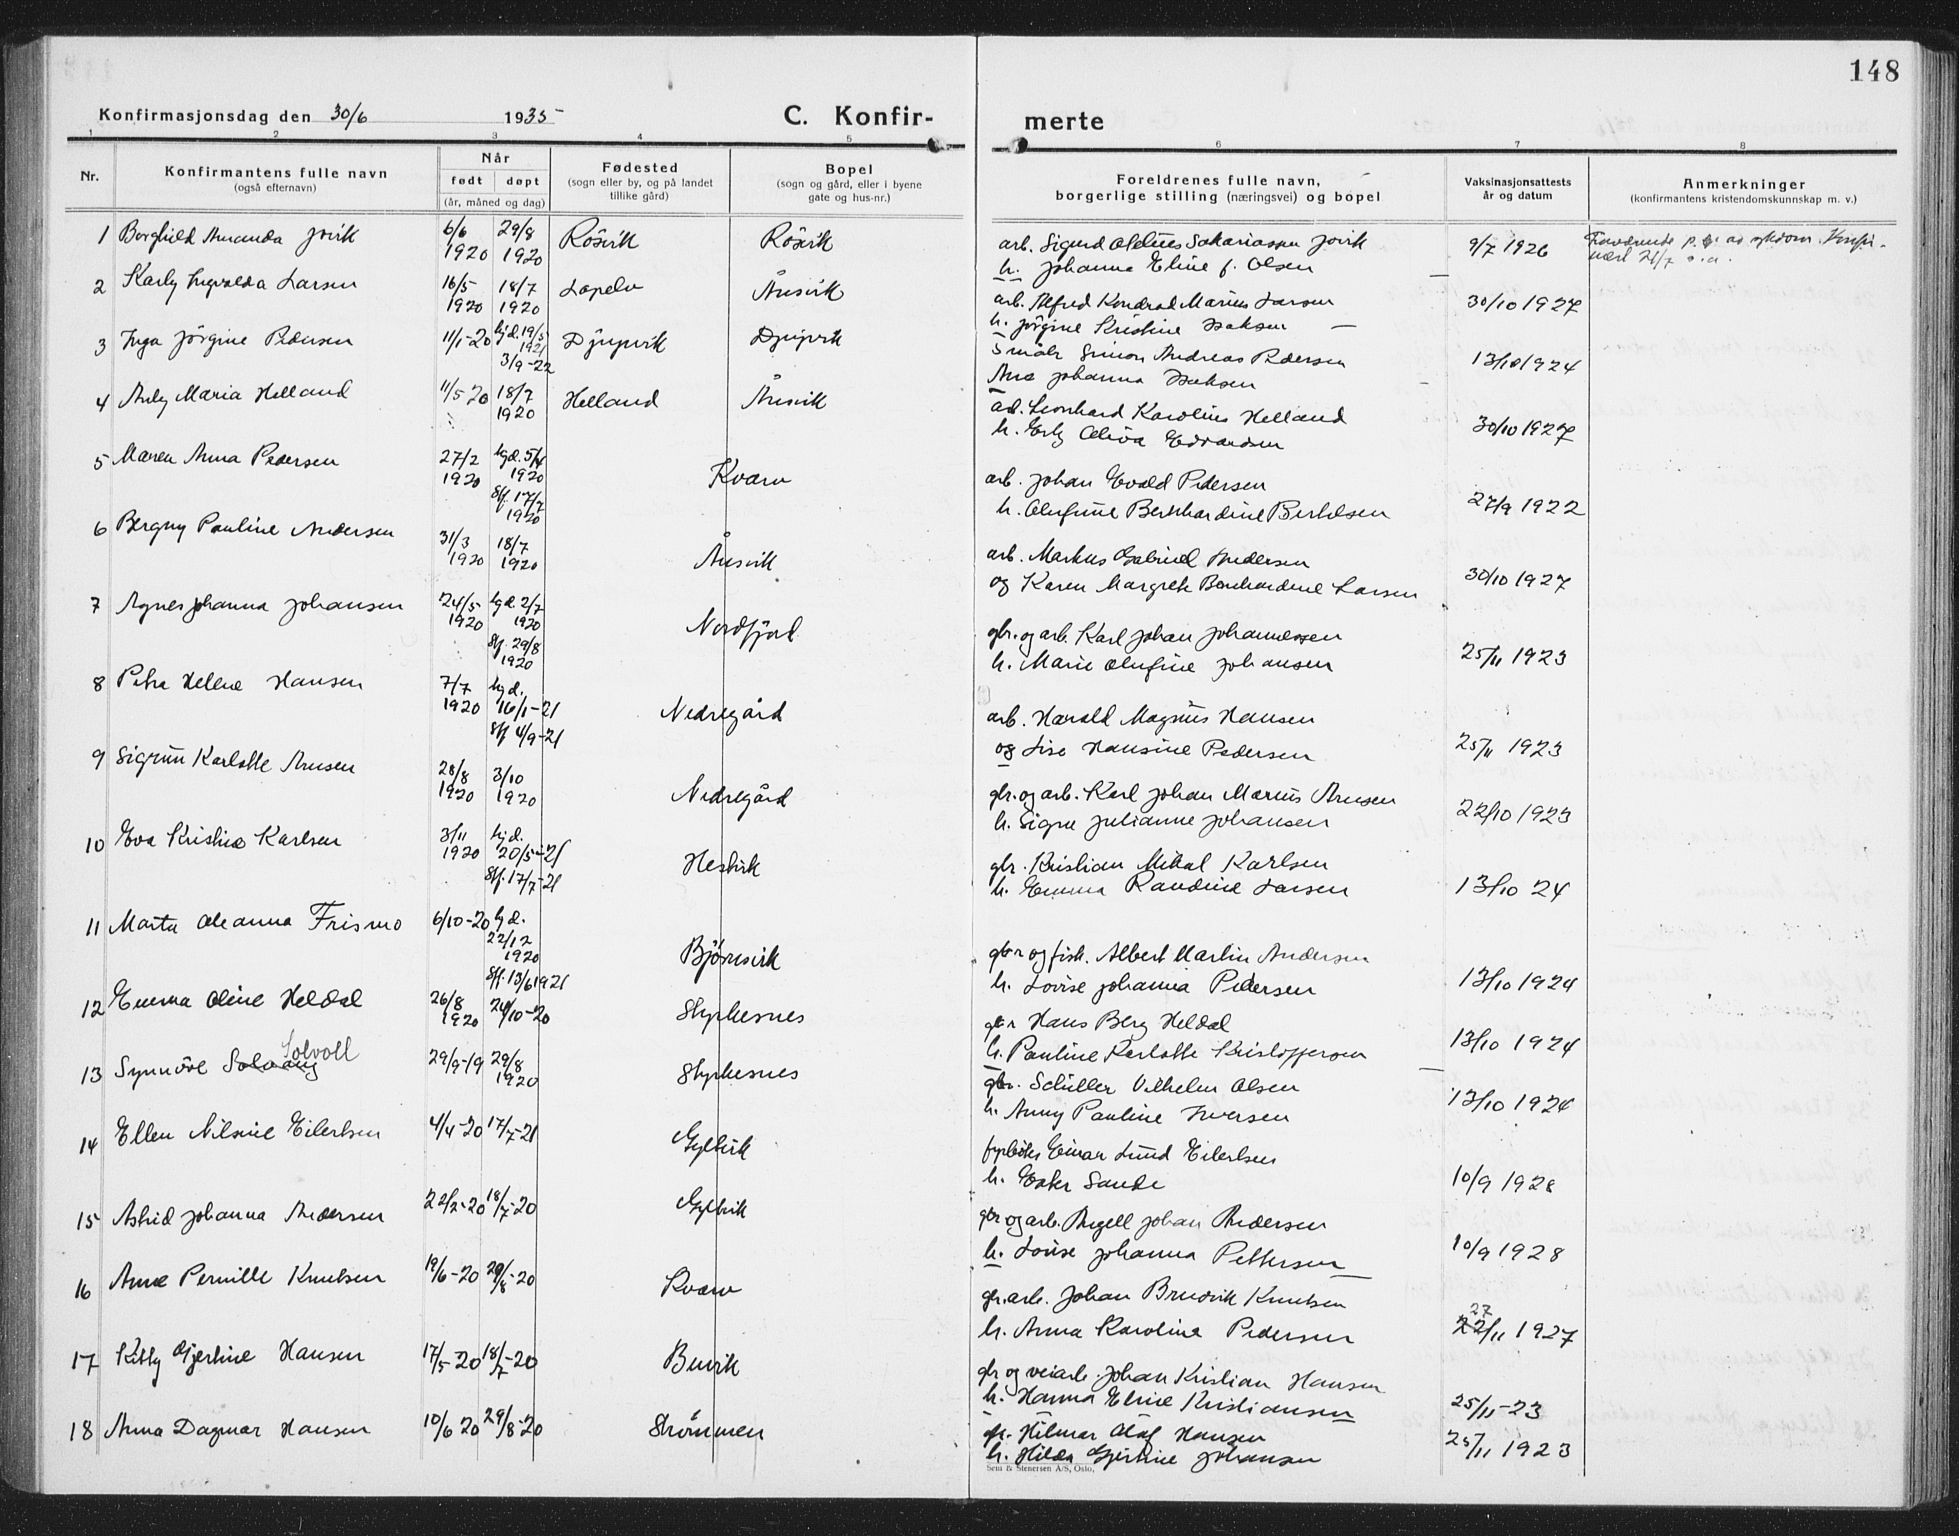 148
Konfirmasjonsdag den 30/6 1935
C. Konfir-
merte
1 2 3 4 5 6 7 8
Nr.
Konfirmantens fulle navn
(også efternavn)
Når
født døpt
(år, måned og dag)
Fødested
(sogn eller by, og på landet
tillike gård)
Bopel
(sogn og gård, eller i byene
gate og hus-nr.)
Foreldrenes fulle navn,
borgerlige stilling (næringsvei) og bopel
Vaksinasjonsattests
år og datum
Anmerkninger
(konfirmantens kristendomskunnskap m. v.)
1 Borghild Amanda Jovik 6/6 1920 29/8 1920 Rösvik Rösvik
arb. Sigurd Sakariassen Jovik 9/7 1926 Fraværende p. gr. av sykdom. Konfir-
h. Johanna Eline f. Olsen
mert 21/7 s.a.
2 Karly Ingvalda Larsen 16/5 1920 18/7 1920 Lapelv Ånsvik
arb. Alfred Kondrad Marius Larsen 30/10 1927
h. Jörgine Kristine Isaksen
3 Inga Jörgine Pedersen 11/1-20 hjd. 19/5 1921 3/9-22 Djupvik Djupvik
Småbr. Simon Andreas Pedersen 13/10 1924
Ane Johanna Isaksen
4 Arly Maria Helland 11/5 20 18/7 1920 Helland Ånsvik
arb. Leonhard Karolius Helland 30/10 1927
h. Erly Oliva Edvardsen
5 Maren Anna Pedersen 27/2 1920 hjd. 5/4 1920 Stf. 17/7 1920 Kvarv
arb. Johan Evald Pedersen
h. Olufine Bernhardine Bertelsen 27/9 1922
6 Bergny Pauline Andersen 31/3 1920 18/7 1920 Ånsvik
arb. Markus Gabriel Andersen
og Karen Margrete Bernhardine Larsen 30/10 1927
7 Agnes Johanna Johansen 24/5 1920 hjd. 2/7 1920 Stf. 29/8 1920 Nordfjord
gbr. og arb. Karl Johan Johannessen
h. Marie Olufine Johansen 25/11 1923
8 Petra Helene Hansen 7/7 1920 hjd. 16/1-21 Stf 4/9-21 Nedregård
arb. Harald Magnus Hansen
og Lise Hansine Pedersen 25/11 1923
9 Sigrun Karlotte Arnsen 28/8 1920 3/10 1920 Nedregård
gbr. og arb. Karl Johan Marius Arnsen
h. Signe Julianne Johansen 22/10 1923
10 Eva Kristine Karlsen 3/11 1920 hjd. 20/5-21 Stf. 17/7-21 Hestvik
gbr. Kristian Mikal Karlsen
h. Emma Randine Larsen 13/10 24
11 Marta Oleanna Frismo 6/10-20 hjd. 22/12 1920 Stf. 13/6 1921 Björnsvik
gbr og fisk. Albert Martin Andersen
h. Lovise Johanna Pedersen 13/10 1924
12 Emma Oline Heldal 26/8 1920 24/10-20 Styrkesnes
gbr Hans Berg Heldal
h. Pauline Karlotte Kristoffersen 13/10 1924
13 Synnöve Solvang Solvoll 29/9-19 29/8 1920 Styrkesnes
gbr. Schiller Vilhelm Olsen
h. Anny Pauline Iversen 13/10 1924
14 Ellen Nilsine Eilertsen 4/4-20 17/7-21 Gyltvik
Einar Lund Eilertsen
h. Ester Sande 10/9 1928
15 Astrid Johanna Andersen 22/2-20 18/7-20 Gyltvik
gbr og arb. Angell Johan Andersen
h. Lovise Johanna Pettersen 10/9 1928
16 Anne Pernille Knutsen 19/6-20 29/8-20 Kvarv
gbr. arb. Johan Brudvik Knutsen
h. Anna Karoline Pedersen 27 22/11 1927
17 Kitty Gjertine Hansen 17/5-20 18/7-20 Buvik
gbr og veiarb. Johan Kristian Hansen
h. Hanna Eline Kristiansen 25/11-23
18 Anna Dagmar Hansen 10/6 20 29/8-20 Strömmen
gbr. Hilmar Olaf Hansen 25/11 1923
h. Hilda Gjertine Johansen
Sem & Stenersen A/S, Oslo.